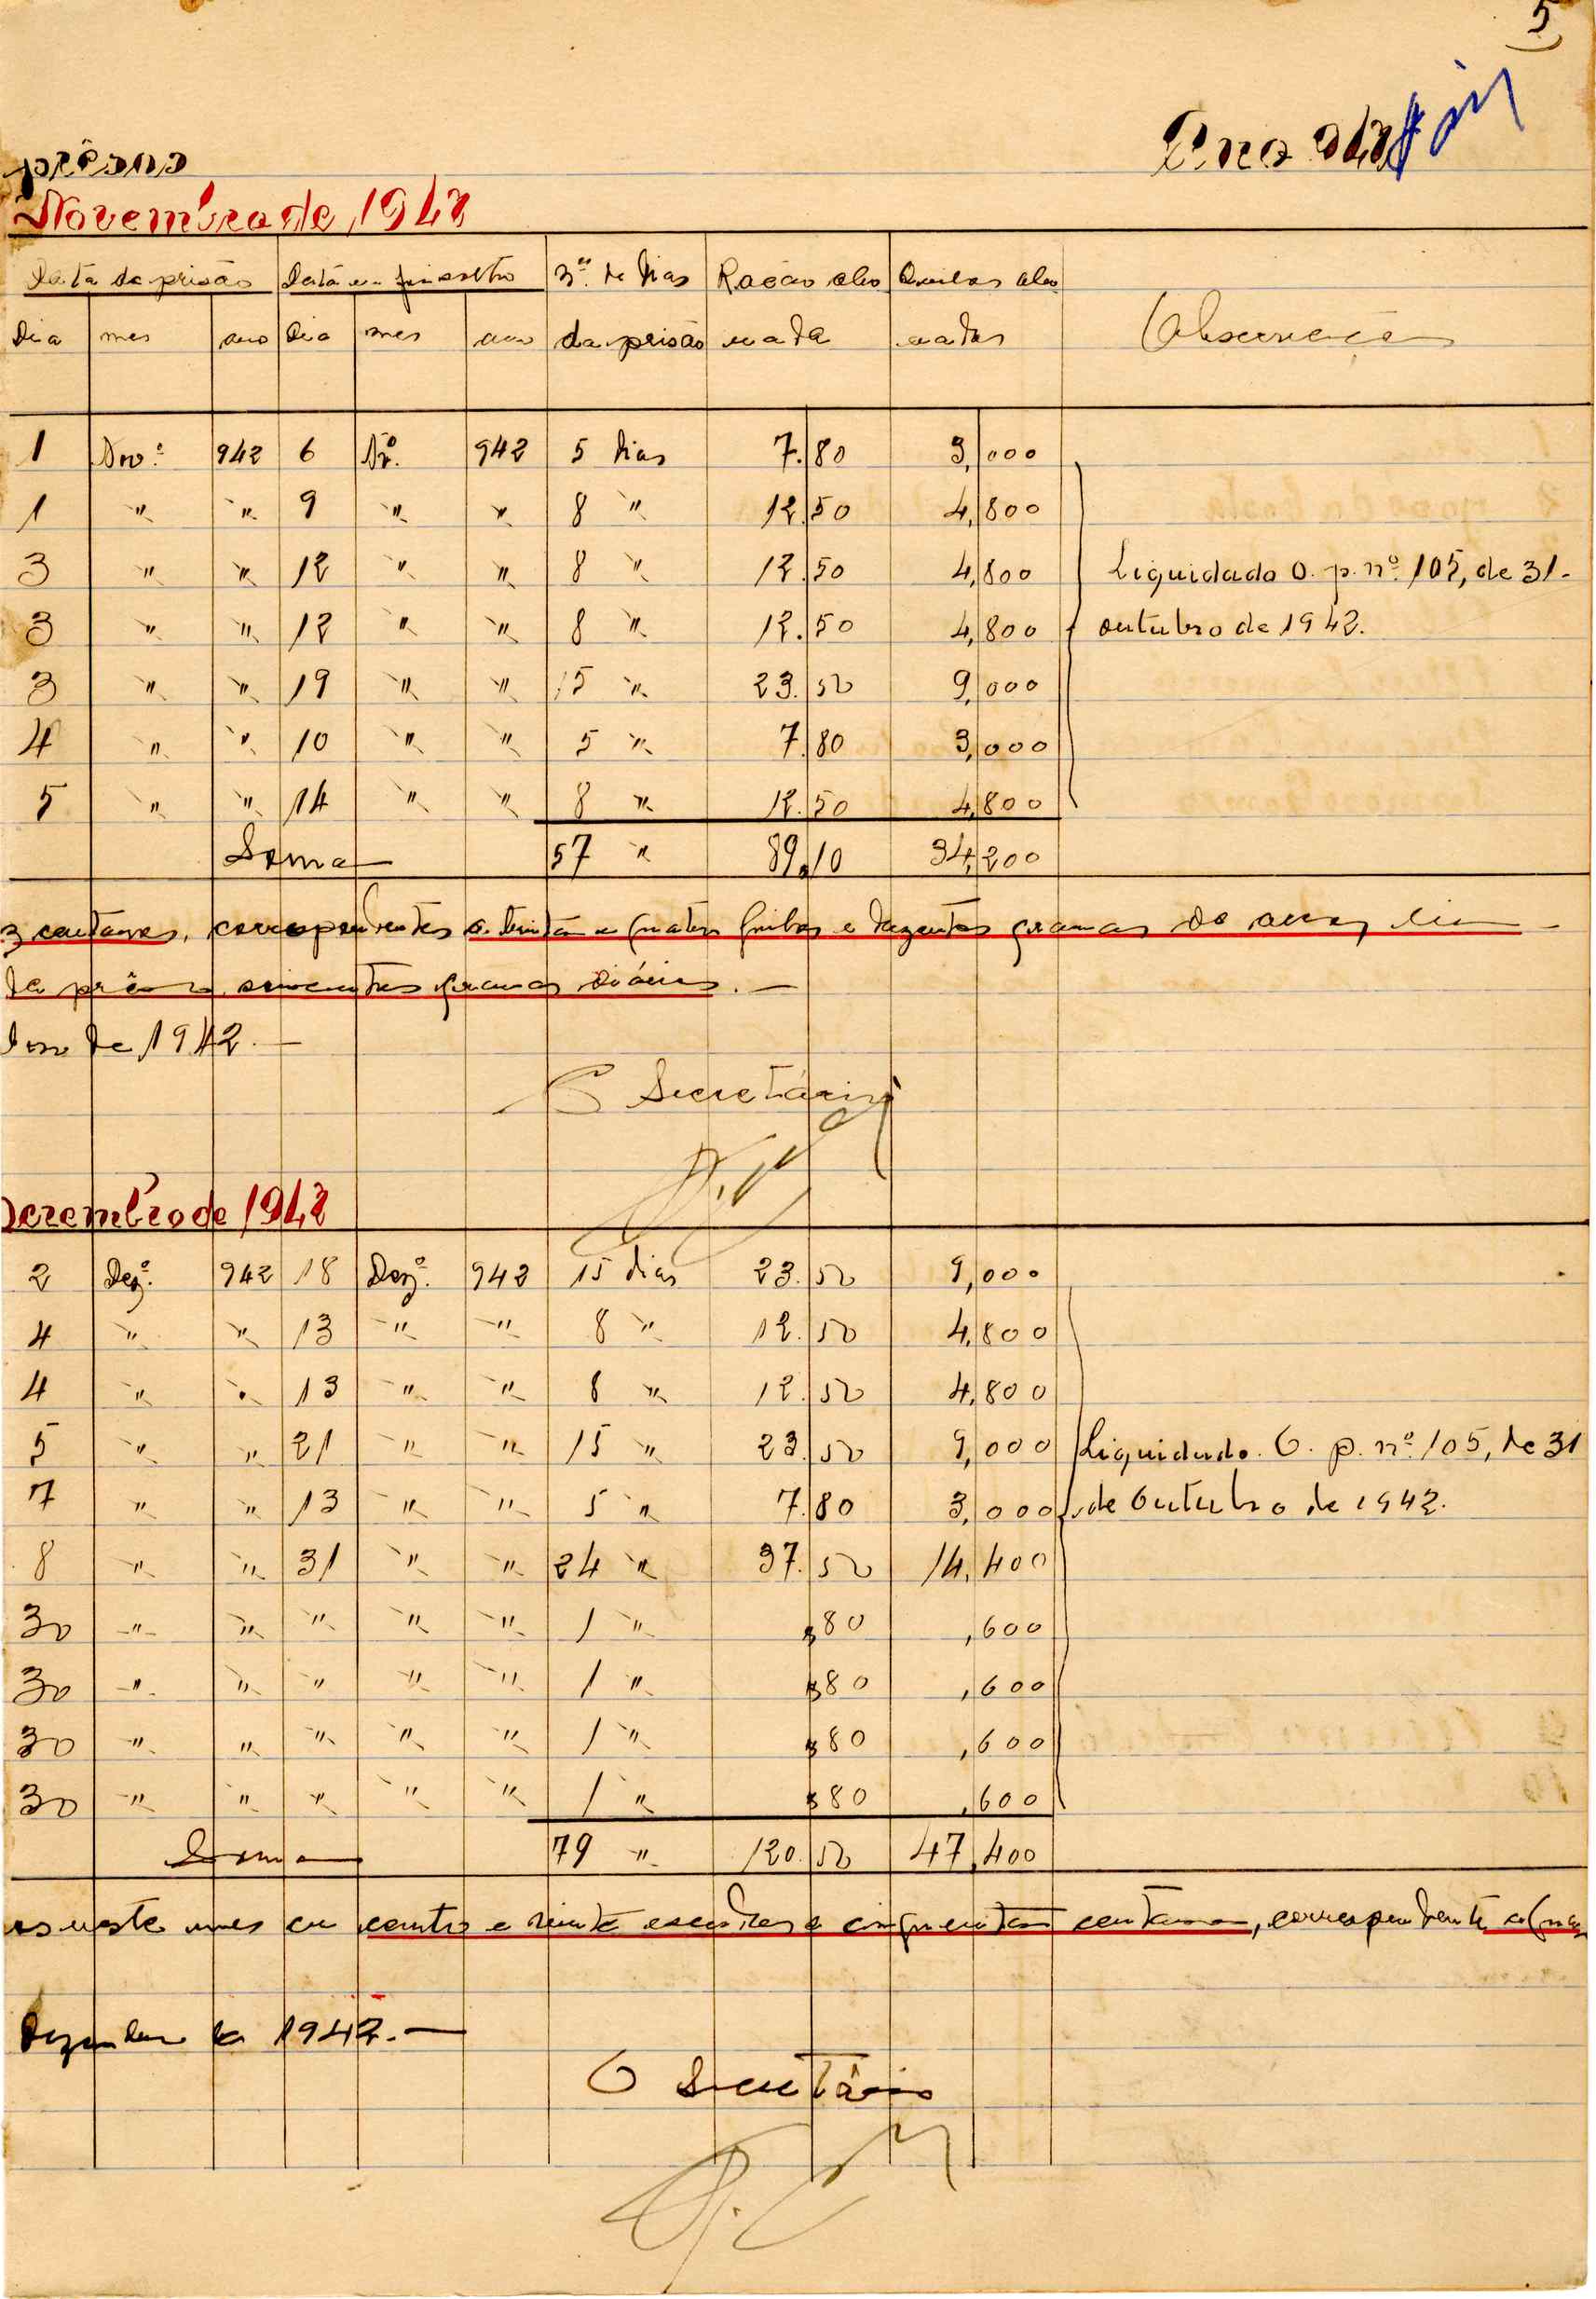 5
prêsos
Ano 942
Novembro de 1942
Data da prisão Data em que solto Nº de dias Ração abo Quilos abo
Dia mes ano Dia mes ano da prisão nada nados Observações
1 Nov.º 942 6 Nº. 942 5 dias 7.80 3,000
1 " " 9 " " 8 " 12.50 4,800
3 " " 12 " " 8 " 12.50 4,800 Liquidado O. p. nº. 105, de 31-
3 " " 12 " " 8 " 12.50 4,800 outubro de 1942.
3 " " 19 " " 15 " 23.50 9,000
4 " " 10 " " 5 " 7.80 3,000
5 " " 14 " " 8 " 12.50 4,800
Soma 57 " 89.10 34,200
centavos, correspondentes a trinta e quatro quilos e duzentos gramas de arroz,
da prêso seiscentas gramas diárias. —
de 1942. —
O Secretário
Dezembro de 1942
2 Dez.º 942 18 Dez.º 942 15 dias 23.50 9,000
4 " " 13 " " 8 " 12.50 4,800
4 " " 13 " " 8 " 12.50 4,800
5 " " 21 " " 15 " 23.50 9,000 Liquidado O. p. nº. 105, de 31
7 " " 13 " " 5 " 7.80 3,000 de Outubro de 1942.
8 " " 31 " " 24 " 37.50 14,400
30 " " " " " 1 " $80 ,600
30 " " " " " 1 " $80 ,600
30 " " " " " 1 " $80 ,600
30 " " " " " 1 " $80 ,600
Soma 79 " 120.50 47,400
os neste mes em cento e vinte escudos e cinquenta centavos, correspondente a qua
Dezembro de 1942. —
O Secretário